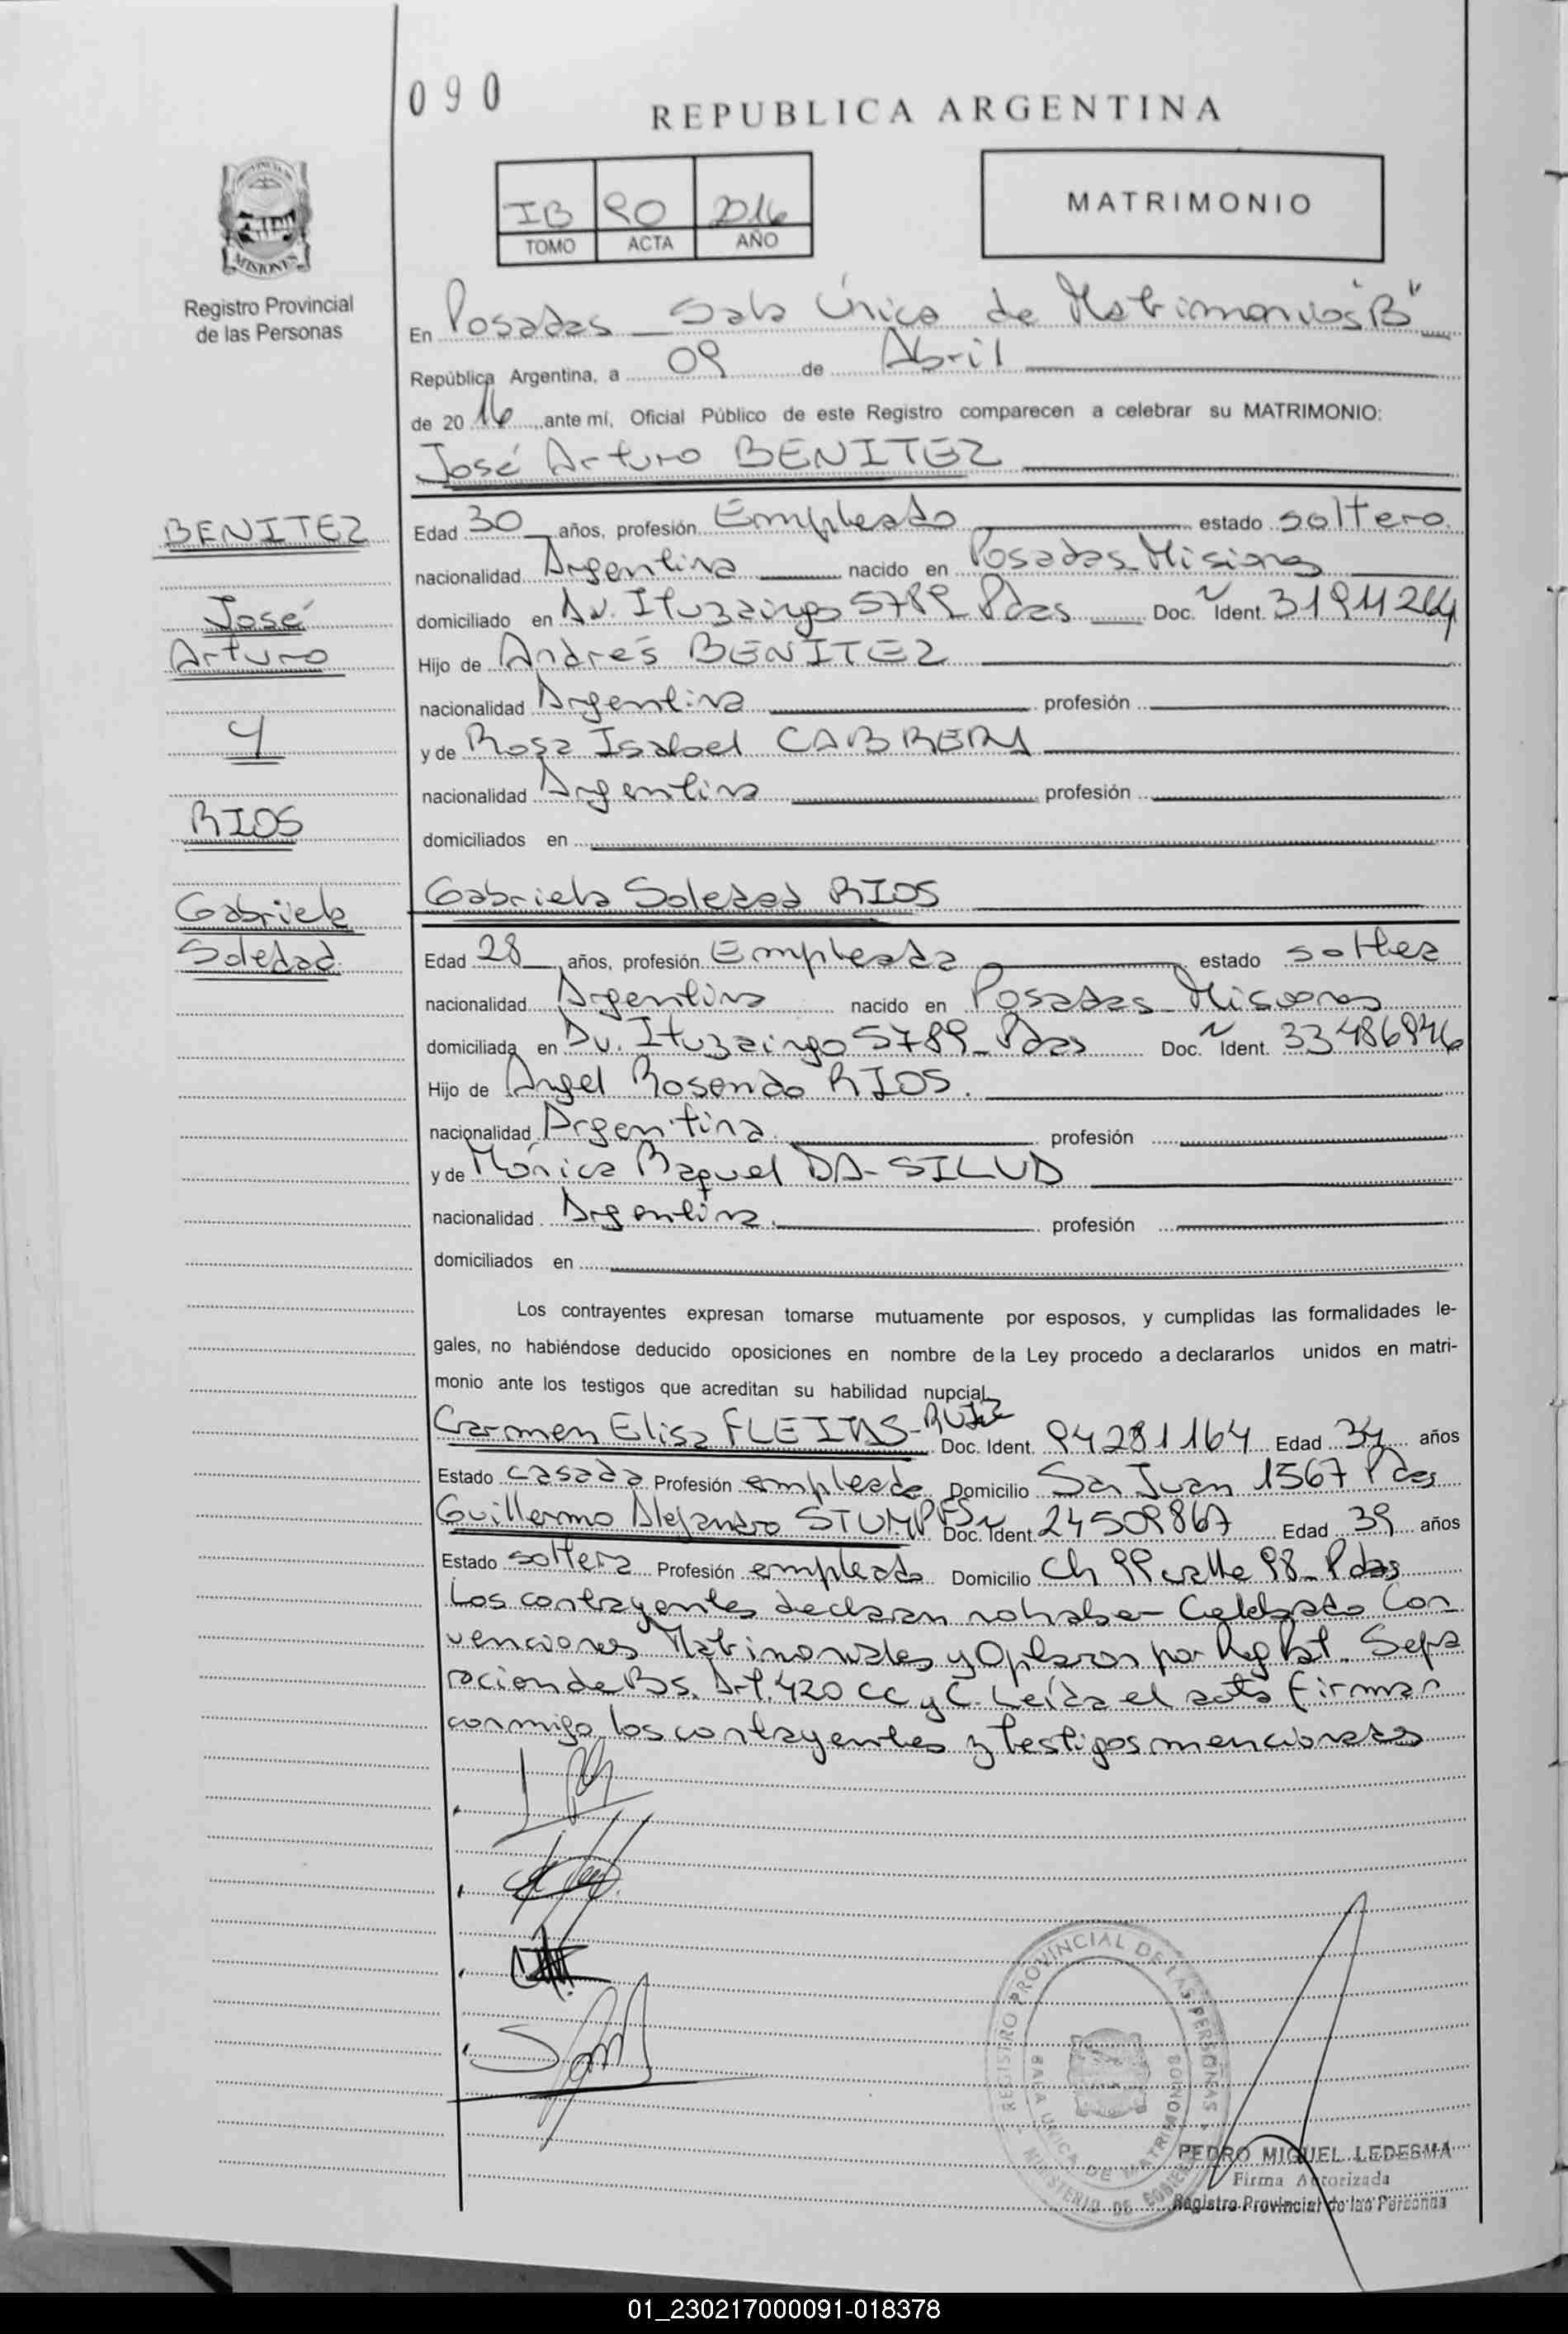 090
REPUBLICA ARGENTINA
PROVINCIA DE MISIONES
Registro Provincial
de las Personas
IB 90 2016
TOMO ACTA AÑO
MATRIMONIO
En Posadas - Sala Única de Matrimonios "B"
República Argentina, a 09 de Abril
de 2016 ante mí, Oficial Público de este Registro comparecen a celebrar su MATRIMONIO:
José Arturo BENITEZ
BENITEZ
José
Arturo
y
RIOS
Gabriela
Soledad
Edad 30 años, profesión Empleado estado soltero
nacionalidad Argentina nacido en Posadas Misiones
domiciliado en Av. Ituzaingo 5789 - Pdas Doc. Ident. 31911264
Hijo de Andrés BENITEZ
nacionalidad Argentina profesión
y de Rosa Isabel CABRERA
nacionalidad Argentina profesión
domiciliados en
Gabriela Soledad RIOS
Edad 28 años, profesión Empleada estado soltera
nacionalidad Argentina nacido en Posadas - Misiones
domiciliada en Av. Ituzaingo 5789 - Pdas Doc. Ident. 33486946
Hijo de Angel Rosendo RIOS.
nacionalidad Argentina profesión
y de Mónica Raquel DA-SILVA
nacionalidad Argentina. profesión
domiciliados en
Los contrayentes expresan tomarse mutuamente por esposos, y cumplidas las formalidades le-
gales, no habiéndose deducido oposiciones en nombre de la Ley procedo a declararlos unidos en matri-
monio ante los testigos que acreditan su habilidad nupcial
Carmen Elisa FLEITAS-RUIZ Doc. Ident. 94281164 Edad 34 años
Estado casada Profesión empleada Domicilio San Juan 1567 Pdas
Guillermo Alejandro STUMPFS Doc. Ident. 24509867 Edad 39 años
Estado soltero Profesión empleado Domicilio Ch 99 calle 98 - Pdas
Los contrayentes declaran no haber Celebrado Con
venciones Matrimoniales y Optaron por Reg Pat. Sepa
racion de Bs. Art. 420 CC y C. Leída el acta firman
conmigo los contrayentes y testigos mencionados
REGISTRO PROVINCIAL DE LAS PERSONAS
SALA UNICA DE MATRIMONIOS
MINISTERIO DE GOBIERNO
PEDRO MIGUEL LEDESMA
Firma Autorizada
Registro Provincial de las Personas
01_230217000091-018378